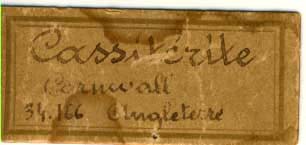 Cassitérite
Cornwall
34.166 Angleterre